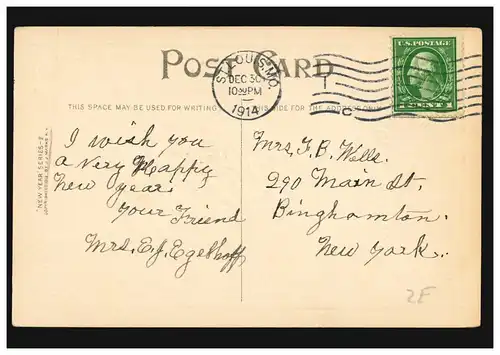 POST CARD
ST. LOUIS, MO.
DEC 30
10 30 PM
1914
U.S. POSTAGE
1 CENT 1
THIS SPACE MAY BE USED FOR WRITING
THIS SIDE FOR THE ADDRESS ONLY
"NEW YEAR" SERIES-E
I wish you
a Very Happy
New year.
Your Friend
Mrs. E.J. Egelhoff
Mrs. T. B. Wells.
290 Main St.
Binghamton.
New York.
2E